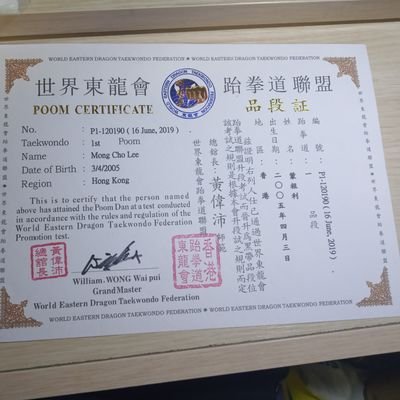 WORLD EASTERN DRAGON TAEKWONDO FEDERATION
世界東龍會 跆拳道聯盟
POOM CERTIFICATE 品段証
No. : P1-120190 ( 16 June, 2019 )
Taekwondo : 1st Poom
Name : Mong Cho Lee
Date of Birth : 3/4/2005
Region : Hong Kong
This is to certify that the person named
above has attained the Poom Dan at a test conducted
in accordance with the rules and regulation of the
World Eastern Dragon Taekwondo Federation
Promotion test.
William.WONG Wai pui
GrandMaster
World Eastern Dragon Taekwondo Federation
編號 : P1-120190 (16 June, 2019)
跆拳道 : 一 品段
姓名 : 蒙祖利
出生日期 : 二〇〇五年四月三日
地區 : 香港
茲證明右列人仕已通過世界東龍會
跆拳道聯盟升段考試而晉升爲黑帶品段位
該考試之規則是根據本會升段試之規則而定
世界東龍會跆拳道聯盟
總館長 : 黃偉沛 師範
黃偉沛
總館長
香港
跆拳道
東龍會
世界東龍會跆拳道聯盟
世界東龍會跆拳道聯盟
WORLD EASTERN DRAGON TAEKWONDO FEDERATION